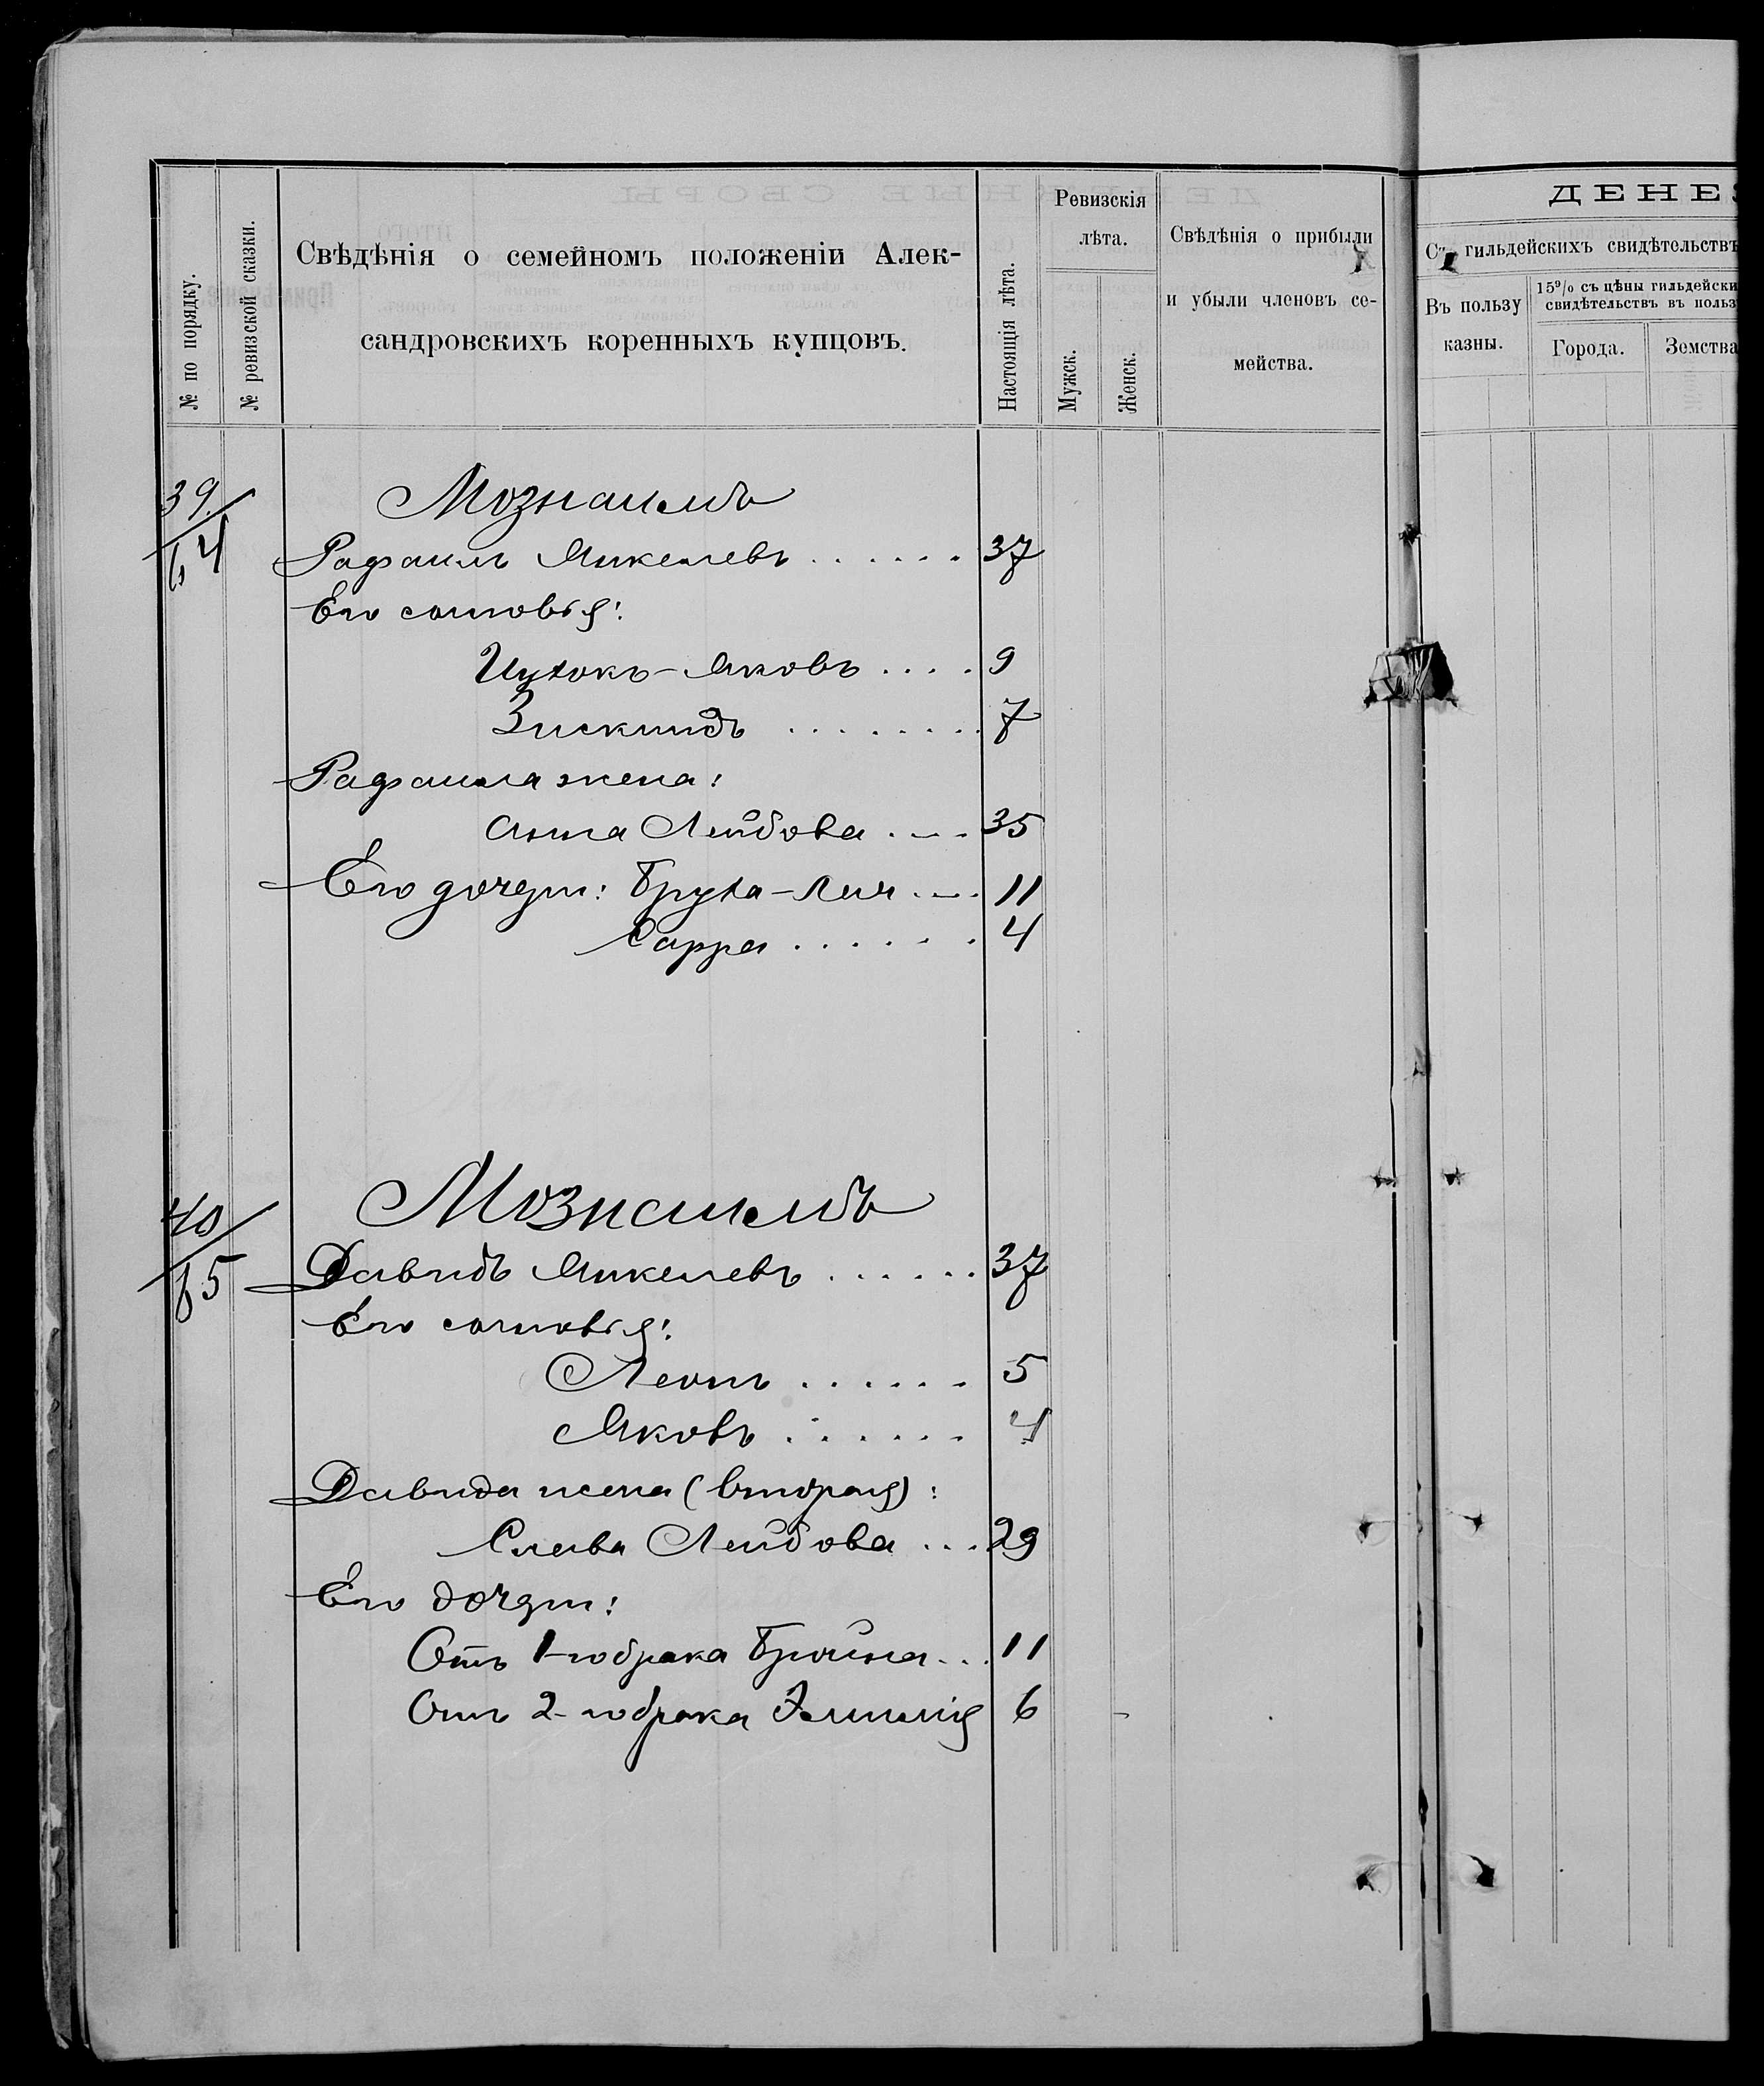 ДЕНЕ
№ по порядку.
№ ревизской сказки.
Свѣдѣнія о семейномъ положеніи Алек-
сандровскихъ коренныхъ купцовъ.
Настоящія лѣта.
Ревизскія
лѣта.
Мужск.
Женск.
Свѣдѣнія о прибыли
и убыли членовъ се-
мейства.
Съ гильдейскихъ свидѣтельствъ
Въ пользу
казны.
15% съ цѣны гильдейски
свидѣтельствъ въ польз
Города.
Земства
39/64
Мознаимъ
Рафаилъ Янкелевъ ...... 37
Его сыновья:
Ицхокъ-Яковъ .... 9
Зискиндъ ........ 7
Рафаила жена:
Анна Лейбова .... 35
Его дочери: Bруха-Лея .... 11
Сарра ...... 4
40/65
Мознаимъ
Давидъ Янкелевъ ...... 37
Его сыновья:
Леонъ ...... 5
Яковъ ...... 4
Давида жена (вторая):
Слава Лейбова ... 29
Его дочери:
Отъ 1-го брака Бройна ... 11
Отъ 2-го брака Эмилія 6